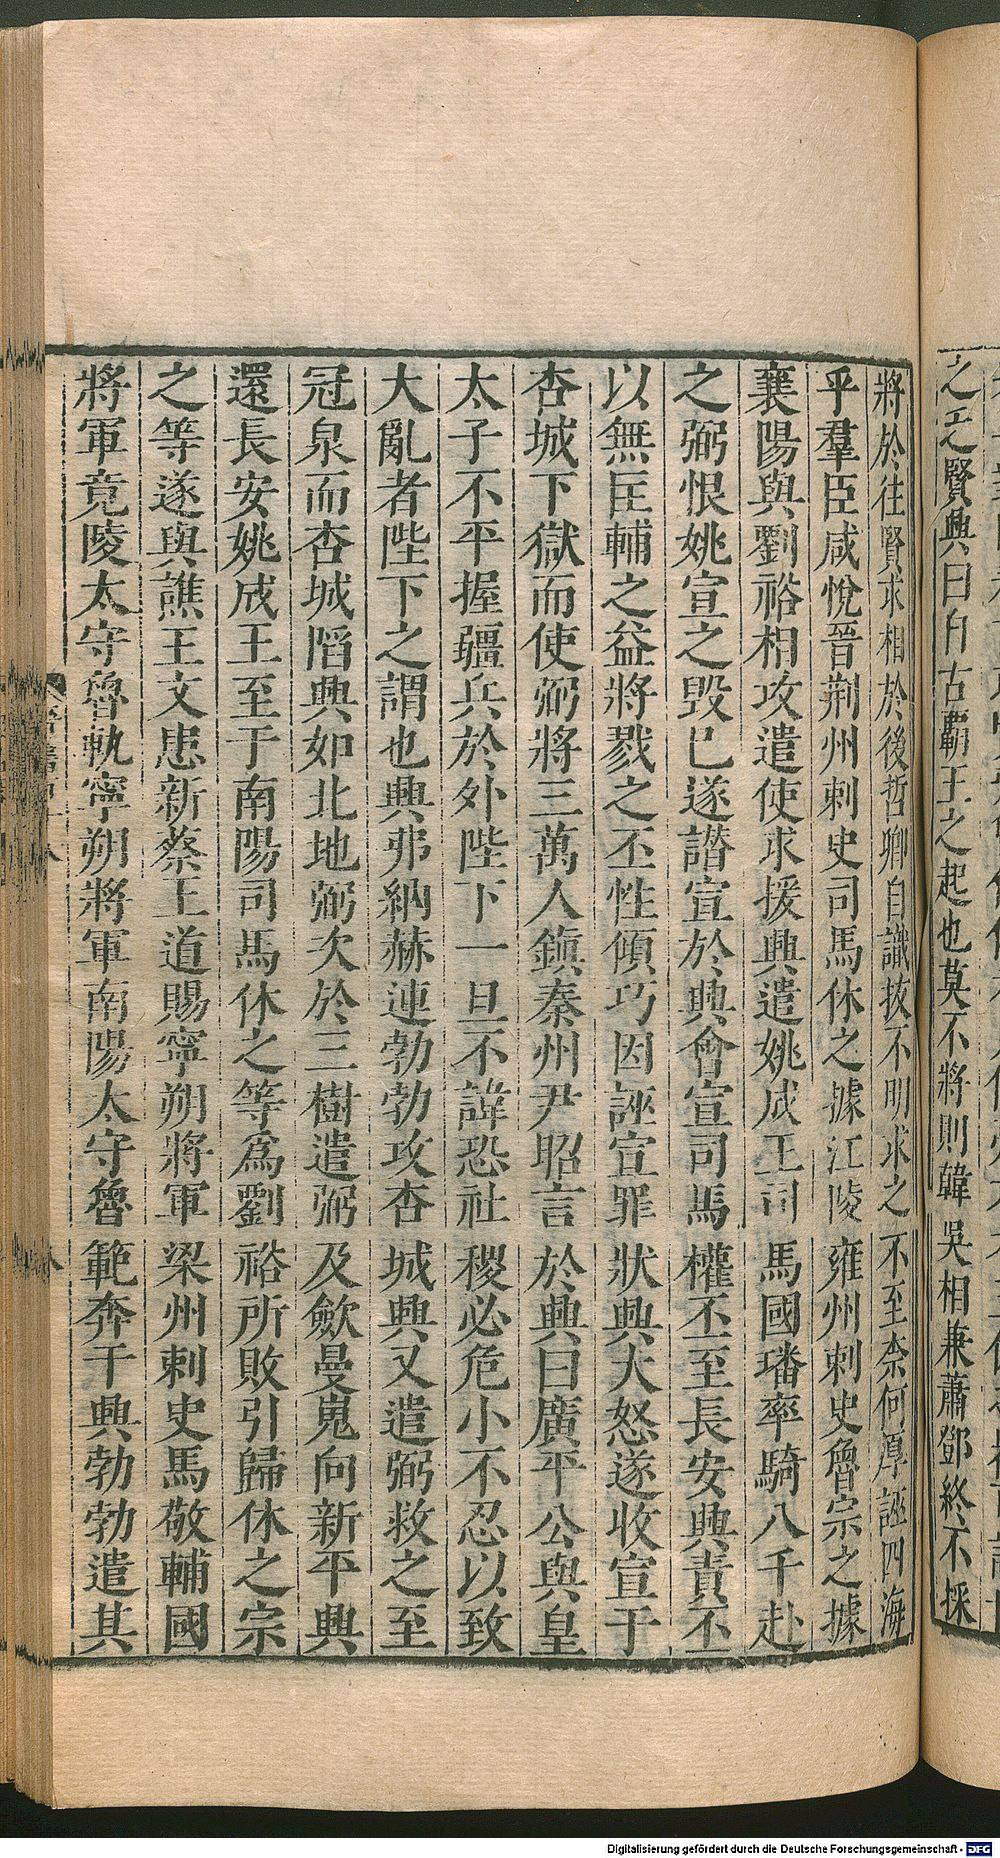 之工之賢興曰自古霸王之起也莫不將則韓吳相兼蕭鄧終不採
將於往賢求相於後哲卿自識拔不明求之不至柰何厚誣四海
乎羣臣咸悅晉荆州刺史司馬休之據江陵雍州刺史魯宗之據
襄陽與劉裕相攻遣使求援興遣姚成王司馬國璠率騎八千赴
之弼恨姚宣之毀已遂譖宣於興會宣司馬權丕至長安興責丕
以無匡輔之益將戮之丕性傾巧因誣宣罪狀興大怒遂收宣于
杏城下獄而使弼將三萬人鎭秦州尹昭言於興曰廣平公與皇
太子不平握疆兵於外陛下一旦不諱恐社稷必危小不忍以致
大亂者陛下之謂也興弗納赫連勃勃攻杏城興又遣弼救之至
冠泉而杏城陷興如北地弼次於三樹遣弼及歛曼嵬向新平興
還長安姚成王至于南陽司馬休之等爲劉裕所敗引歸休之宗
之等遂與譙王文思新蔡王道賜寧朔將軍梁州刺史馬敬輔國
將軍竟陵太守魯軌寧朔將軍南陽太守魯範奔于興勃勃遣其
Digitalisierung gefördert durch die Deutsche Forschungsgemeinschaft - DFG